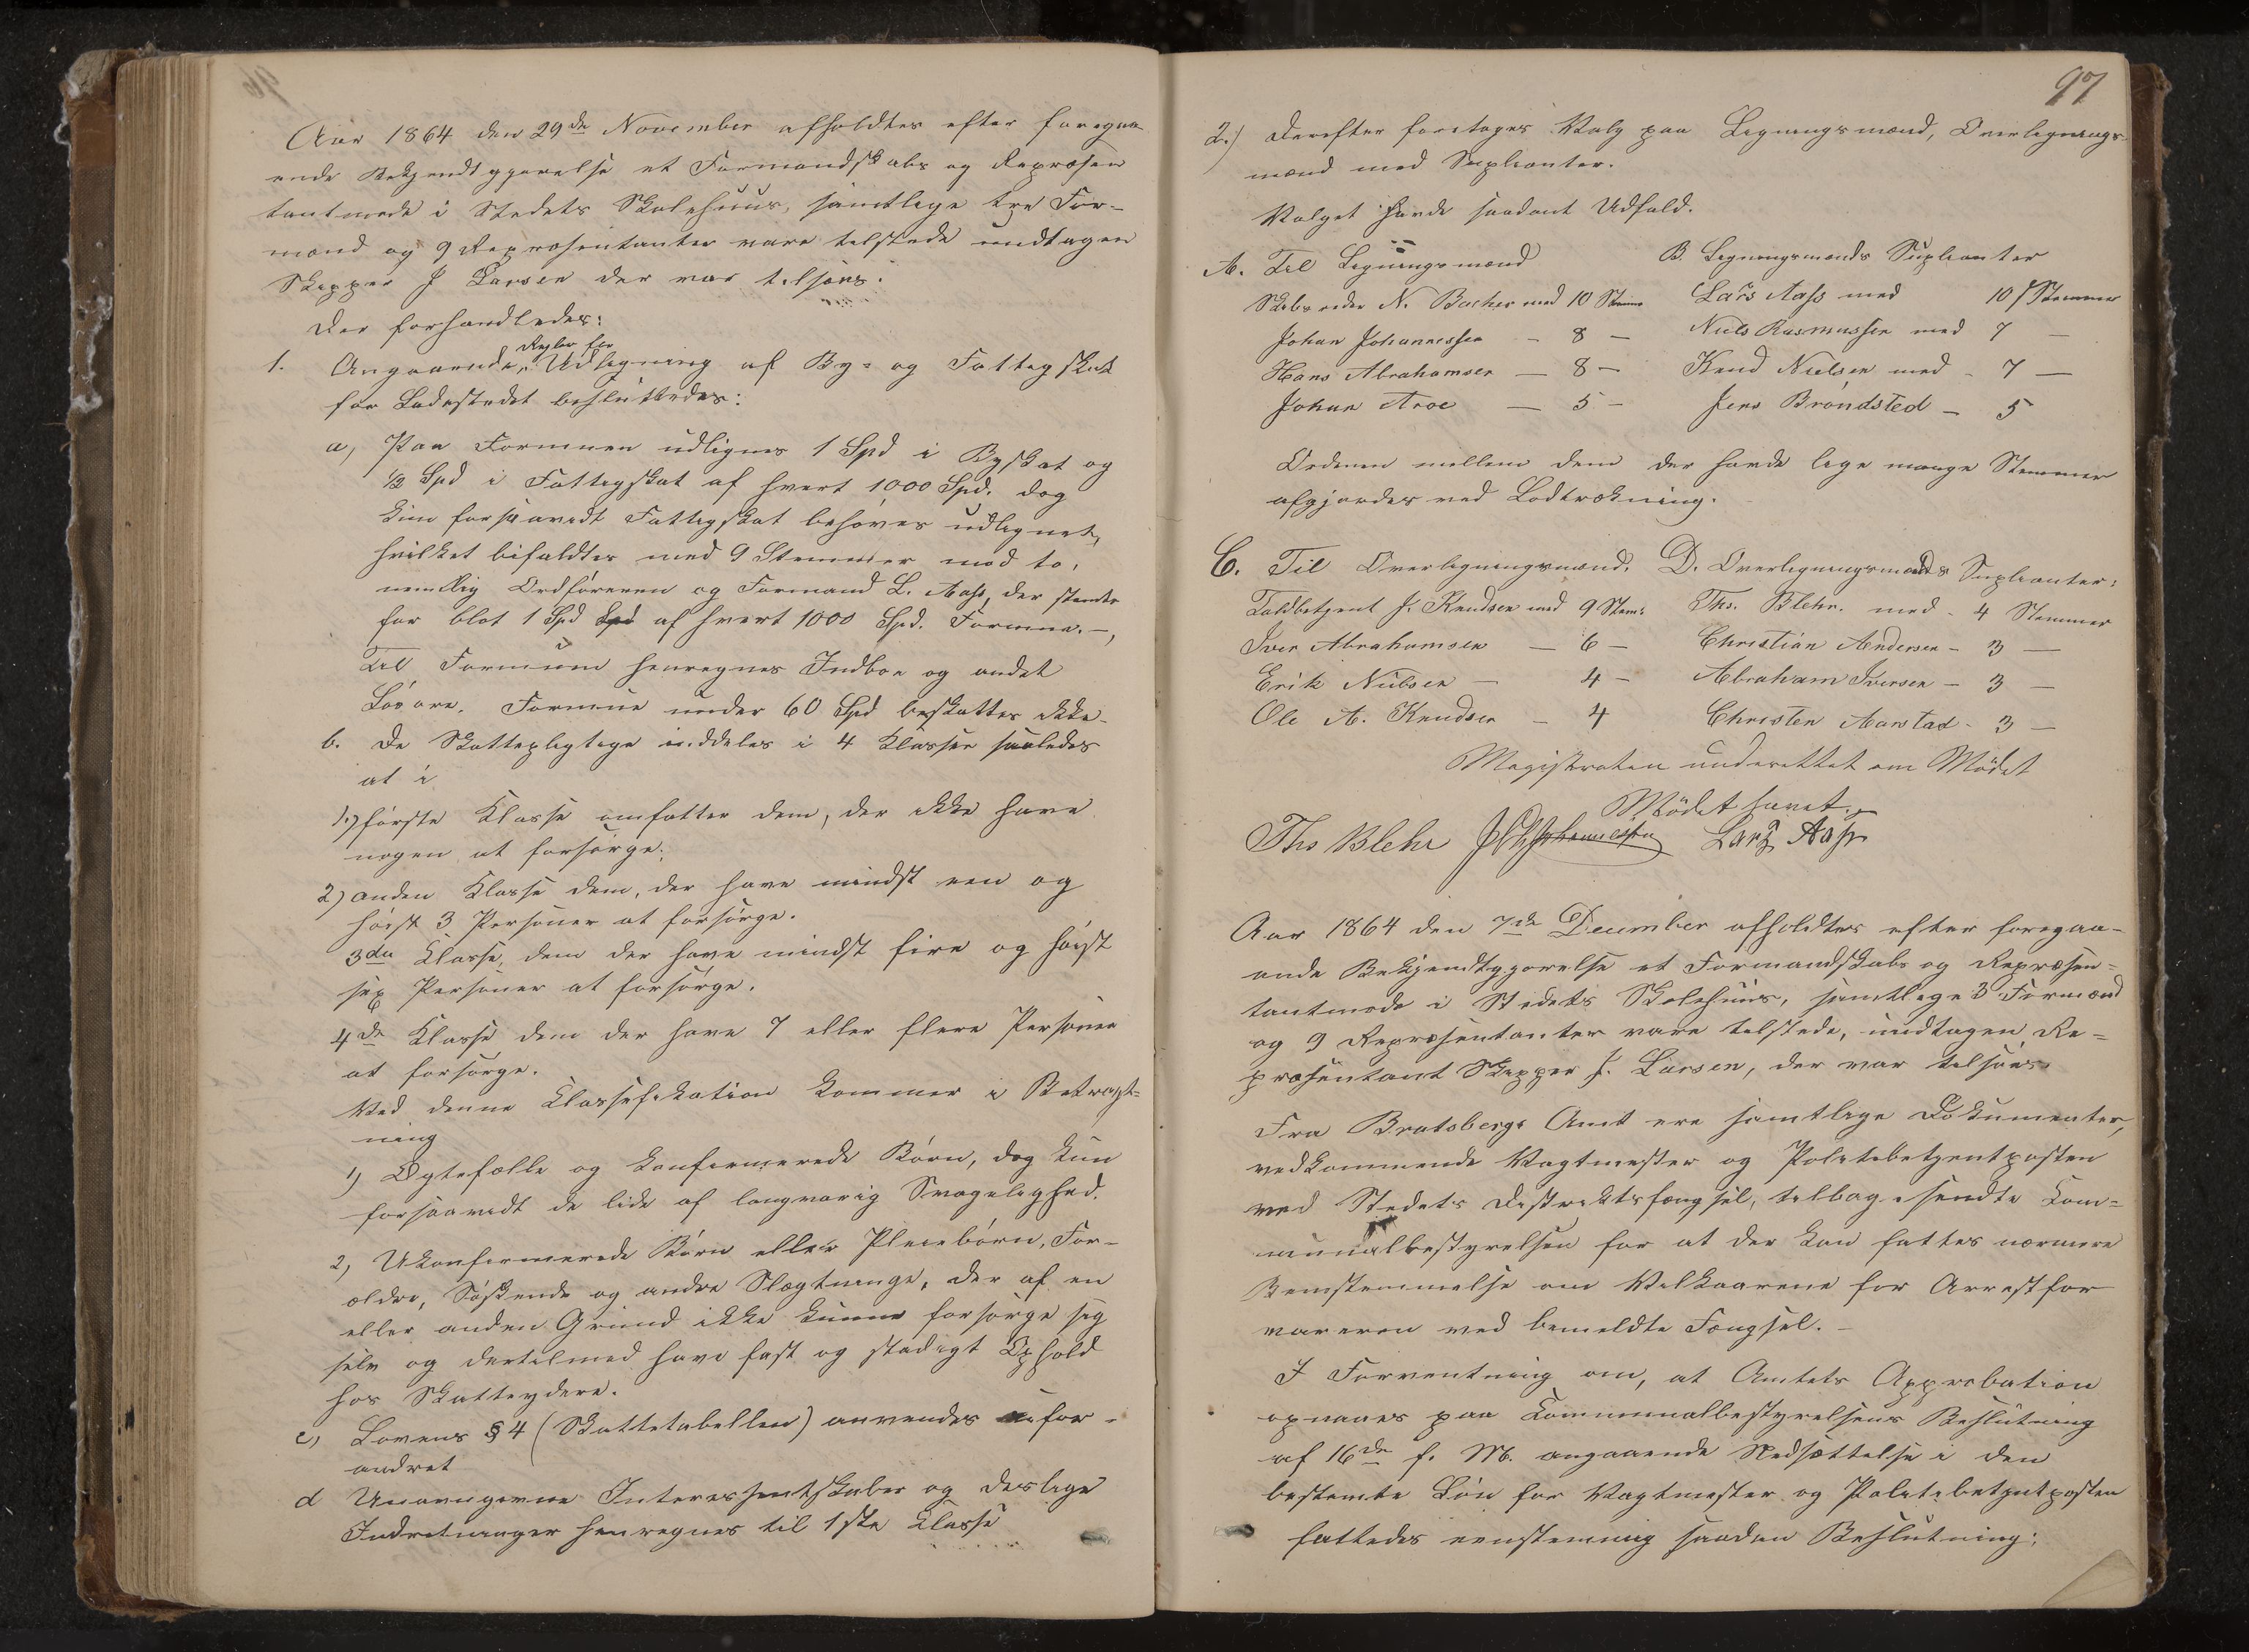 Aar 1864 den 29de November afholdtes efter foregaa-
ende Bekjendtgjørelse et Formandskabs og Repræsen
tantmøde i Stedets Skolehuus, samtlige tre For-
mænd og 9 Repræsentanter vare tilstede undtagen
Skipper J Larsen der var tilsøes.
Der forhandledes:
Regler for
1. Angaaende Udligning af By- og Fattigskat
for Ladestedet besluttedes:
a, Paa Formuen udlignes 1 Spd i Byskat og
½ Spd i Fattigskat af hvert 1000 Spd. dog
kun forsaavidt Fattigskat behøves udlignet,
hvilket bifaldtes med 9 Stemmer mod to,
nemlig Ordføreren og Formand L. Aass, der stemte
for blot 1 Spd Spd af hvert 1000 Spd. Formue.—,
Til Formuen henregnes Indboe og andet
Løsøre. Formue under 60 Spd beskattes ikke-
b. De Skattepligtige inddeles i 4 Klasser saaledes
at i
1.) første Klasse omfatter dem, der ikke have
nogen at forsørge;
2) anden Klasse dem, der have mindst een og
høist 3 Personer at forsørge.
3die Klasse, dem der have mindst fire og høist
sex Personer at forsørge.
4de Klasse dem der have 7 eller flere Personer
at forsørge.
Ved denne Klassefikation kommer i Betragt-
ning
1) Ægtefælle og konfirmerede Børn, dog kun
forsaavidt de lide af langvarig Svagelighed.
2, Ukonfirmerede Børn eller Pleiebørn, For-
ældre, Søskende og andre Slægtninge, der af en
eller anden Grund ikke kunne forsørge sig
selv og dertilmed have fast og stadigt Ophold
hos Skatteydere.
c, Lovens § 4 (Skattetabellen) anvendes ufor-
andret
d Unavngivne Interessentskaber og deslige
Indretninger henregnes til 1ste Classe
97
2.) Derefter foretoges Valg paa Ligningsmænd, Overlignings-
mænd med Suplianter.
Valget havde saadant Udfald.
A. Til Ligningsmænd
Skibsreder N. Backer med 10 Stemmer
Johan Johannessen – 8 –
Hans Abrahamsen – 8 –
Johan Aroe – 5 –
B. Ligningsmænds Suplianter
Lars Aass med 10 Stemmer
Niels Rasmussen med 7 –
Knud Nielsen med – 7 –
Jens Brøndsted – 5
Ordenen mellem dem der havde lige mange Stemmer
afgjordes ved Lodtrækning.
C. Til Overligningsmænd.
Toldbetjent J. Knudsen med 9 Stem:
Iver Abrahamsen – 6 –
Erik Nielsen – 4 –
Ole A. Knudsen – 4
D. Overligningsmænds Suplianter:
Ths. Blehr. med – 4 Stemmer
Christian Andersen – 3 –
Abraham Iversen – 3 –
Christen Aarstad – 3 –
Magistraten underettet om Mødet
Mødet hævet.
Ths Blehr J Johannessen Lars Aass
Aar 1864 den 7de December afholdtes efter foregaa-
ende Bekjendtgjørelse et Formandskabs og Repræsen-
tantmøde i Stedets Skolehuus, samtlige 3 Formænd
og 9 Repræsentanter vare tilstede, undtagen Re-
præsentant Skipper J. Larsen, der var tilsøes.
Fra Bratsbergs Amt ere samtlige Dokumenter,
vedkommende Vagtmester og Politibetjentposten
ved Stedets Distriktsfængsel, tilbagesendte Com-
munalbestyrelsen for at der kan fattes nærmere
Bemstemmelse om Vilkaarene for Arrestfor
vareren ved bemeldte Fængsel. –
I Forventning om, at Amtets Approbation
opnaaes paa Communalbestyrelsens Beslutning
af 16de f. M. angaaende Nedsættelse i den
bestemte Løn for Vagtmester og Politibetjentposten
fattedes eenstemmig saadan Beslutning: